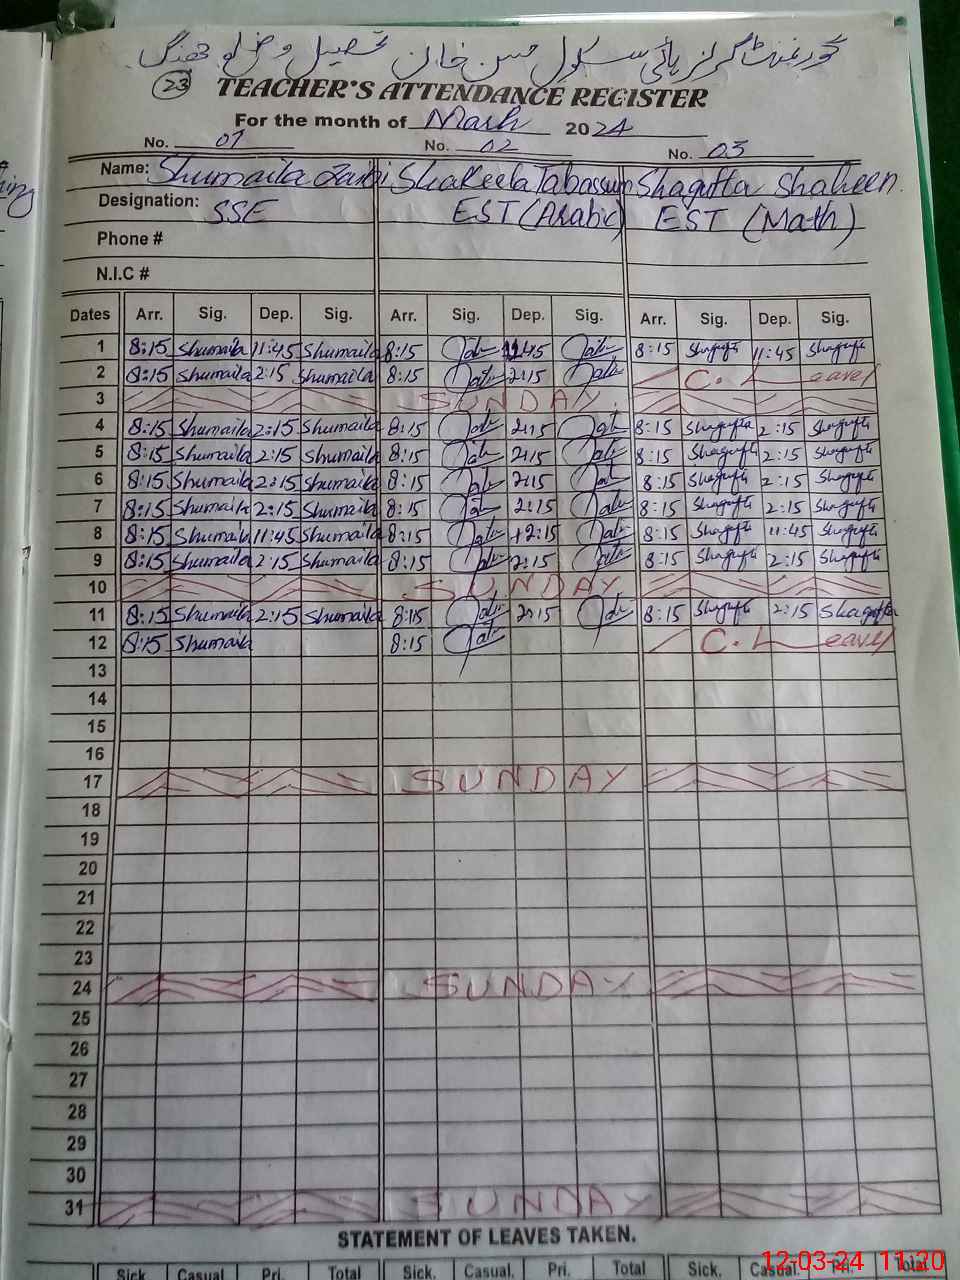 گورنمنٹ گرلز ہائی سکول حسن خان تحصیل و ضلع جھنگ
23 TEACHER'S ATTENDANCE REGISTER
For the month of March 2024
No. 01 No. 02 No. 03
Name: Shumaila Shakeela Tabassum Shagufta Shaheen
Designation: SSE EST (Arabic) EST (Math)
Phone #
N.I.C #
Dates Arr. Sig. Dep. Sig. Arr. Sig. Dep. Sig. Arr. Sig. Dep. Sig.
1 8:15 Shumaila 11:45 Shumaila 8:15 11:45 8:15 Shagufta 11:45 Shagufta
2 8:15 Shumaila 2:15 Shumaila 8:15 2:15 C. Leave
3 SUNDAY
4 8:15 Shumaila 2:15 Shumaila 8:15 2:15 8:15 Shagufta 2:15 Shagufta
5 8:15 Shumaila 2:15 Shumaila 8:15 2:15 8:15 Shagufta 2:15 Shagufta
6 8:15 Shumaila 2:15 Shumaila 8:15 2:15 8:15 Shagufta 2:15 Shagufta
7 8:15 Shumaila 2:15 Shumaila 8:15 2:15 8:15 Shagufta 2:15 Shagufta
8 8:15 Shumaila 11:45 Shumaila 8:15 12:15 8:15 Shagufta 11:45 Shagufta
9 8:15 Shumaila 2:15 Shumaila 8:15 2:15 8:15 Shagufta 2:15 Shagufta
10 SUNDAY
11 8:15 Shumaila 2:15 Shumaila 8:15 2:15 8:15 Shagufta 2:15 Shagufta
12 8:15 Shumaila 8:15 C. Leave
13
14
15
16
17 SUNDAY
18
19
20
21
22
23
24 SUNDAY
25
26
27
28
29
30
31 SUNDAY
STATEMENT OF LEAVES TAKEN.
Sick Casual Pri. Total Sick. Casual. Pri. Total Sick. Casual. Pri. Total
12-03-24 11:20